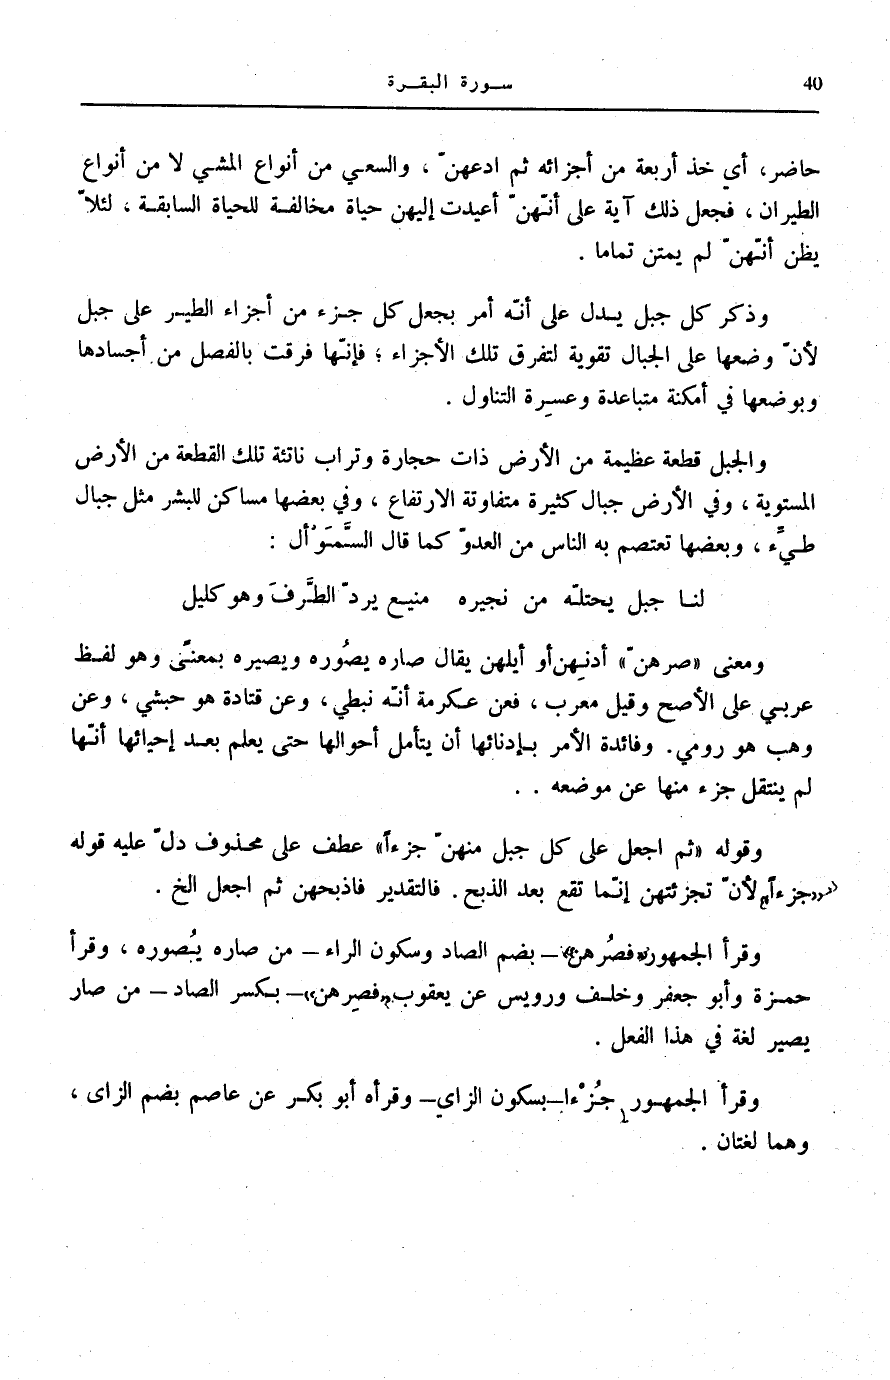 40
سورة البقرة
حاضر، أي خذ أربعة من أجزائه ثم ادعهنّ ، والسعي من أنواع المشي لا من أنواع
الطيران ، فجعل ذلك آية على أنّهنّ أعيدت إليهن حياة مخالفة للحياة السابقة ، لئلاّ
يظن أنّهنّ لم يمتن تماما .
وذكر كل جبل يدل على أنّه أمر بجعل كل جزء من أجزاء الطير على جبل
لأنّ وضعها على الجبال تقوية لتفرق تلك الأجزاء ؛ فإنّها فرقت بالفصل من أجسادها
وبوضعها في أمكنة متباعدة وعسيرة التناول .
والجبل قطعة عظيمة من الأرض ذات حجارة وتراب ناتئة تلك القطعة من الأرض
المستوية ، وفي الأرض جبال كثيرة متفاوتة الارتفاع ، وفي بعضها مساكن للبشر مثل جبال
طيّء ، وبعضها تعتصم به الناس من العدوّ كما قال السَّمَوْأل :
لنا جبل يحتلّه من نجيره منيع يردّ الطَّرفَ وهو كليل
ومعنى «صرهنّ» أدنهن أو أيلهن يقال صاره يصُوره ويصيره بمعنًى وهو لفظ
عربي على الأصح وقيل معرب ، فعن عكرمة أنّه نبطي ، وعن قتادة هو حبشي ، وعن
وهب هو رومي . وفائدة الأمر بإدنائها أن يتأمل أحوالها حتى يعلم بعد إحيائها أنّها
لم ينتقل جزء منها عن موضعه . .
وقوله «ثم اجعل على كل جبل منهنّ جزءاً» عطف على محذوف دلّ عليه قوله
«جزءاً» لأنّ تجزئتهن إنّما تقع بعد الذبح . فالتقدير فاذبحهن ثم اجعل الخ .
وقرأ الجمهور «فصُرهن» – بضم الصاد وسكون الراء – من صاره يَصُوره ، وقرأ
حمزة وأبو جعفر وخلف ورويس عن يعقوب «فصِرهن» – بكسر الصاد – من صار
يصير لغة في هذا الفعل .
وقرأ الجمهور جُزْءا – بسكون الزاي – وقرأه أبو بكر عن عاصم بضم الزاى ،
وهما لغتان .